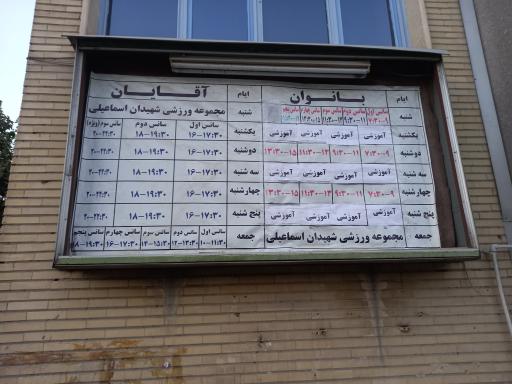 بانوان ایام
آقایان ایام
شنبه سانس اول ۷:۳۰-۹ سانس دوم ۹:۳۰-۱۱ سانس سوم ۱۱:۳۰-۱۳ سانس چهارم سانس پنجم
یکشنبه آموزشی آموزشی آموزشی آموزشی
دوشنبه ۷:۳۰-۹ ۹:۳۰-۱۱ ۱۱:۳۰-۱۳ ۱۳:۳۰-۱۵
سه شنبه آموزشی آموزشی آموزشی آموزشی
چهارشنبه ۷:۳۰-۹ ۹:۳۰-۱۱ ۱۱:۳۰-۱۳ ۱۳:۳۰-۱۵
پنج شنبه آموزشی آموزشی آموزشی آموزشی
جمعه مجموعه ورزشی شهیدان اسماعیلی
شنبه مجموعه ورزشی شهیدان اسماعیلی
یکشنبه سانس اول ۱۶-۱۷:۳۰ سانس دوم ۱۸-۱۹:۳۰ سانس سوم (ویژه) ۲۰-۲۲:۳۰
دوشنبه ۱۶-۱۷:۳۰ ۱۸-۱۹:۳۰ ۲۰-۲۲:۳۰
سه شنبه ۱۶-۱۷:۳۰ ۱۸-۱۹:۳۰ ۲۰-۲۲:۳۰
چهارشنبه ۱۶-۱۷:۳۰ ۱۸-۱۹:۳۰ ۲۰-۲۲:۳۰
پنج شنبه ۱۶-۱۷:۳۰ ۱۸-۱۹:۳۰ ۲۰-۲۲:۳۰
جمعه سانس اول ۱۰-۱۱:۳۰ سانس دوم ۱۲-۱۳:۳۰ سانس سوم ۱۴-۱۵:۳۰ سانس چهارم ۱۶-۱۷:۳۰ سانس پنجم ۱۸-۱۹:۳۰